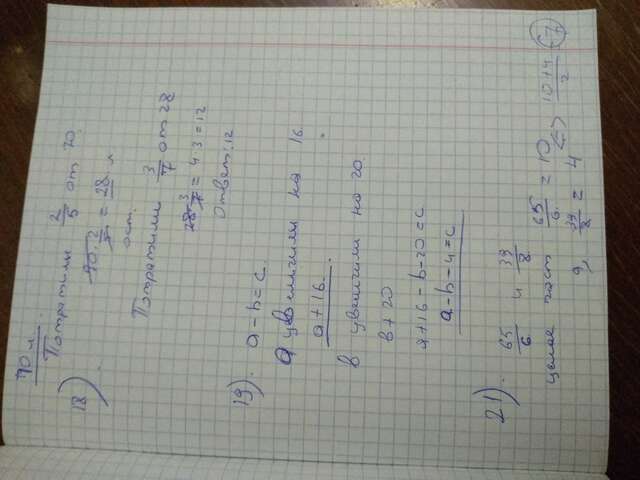 70 л.
18). Потратили 2/5 от 70.
70 · 2/5 = 28 л
ост.
Потратили 3/7 от 28
28 · 3/7 = 4 · 3 = 12
Ответ: 12
19). a - b = c.
a увеличили на 16.
a + 16.
b увеличили на 20.
b + 20
a + 16 - b - 20 = c
a - b - 4 = c
21). 65/6 и 39/8
целая част 65/6 = 10 <=> 10+4/2
39/8 = 4